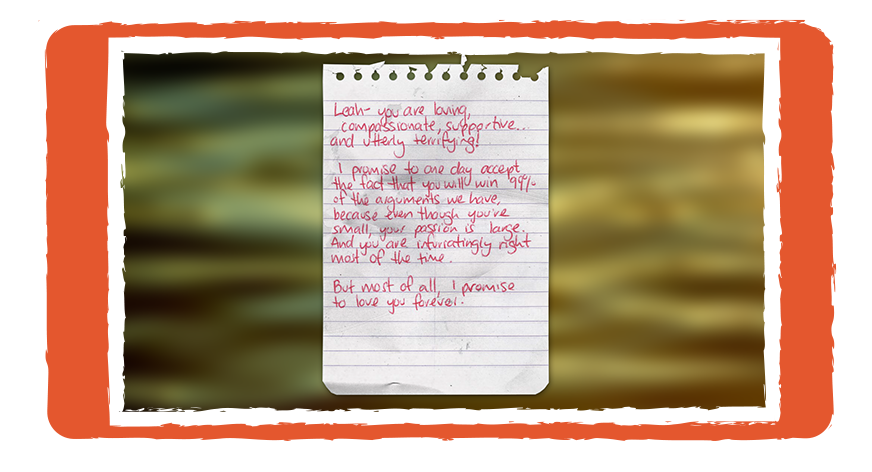 Leah- you are loving,
compassionate, supportive..
and utterly terrifying!
I promise to one day accept
the fact that you will win 99%
of the arguments we have,
because even though you're
small, your passion is large.
And you are infuriatingly right
most of the time.
But most of all, I promise
to love you forever.